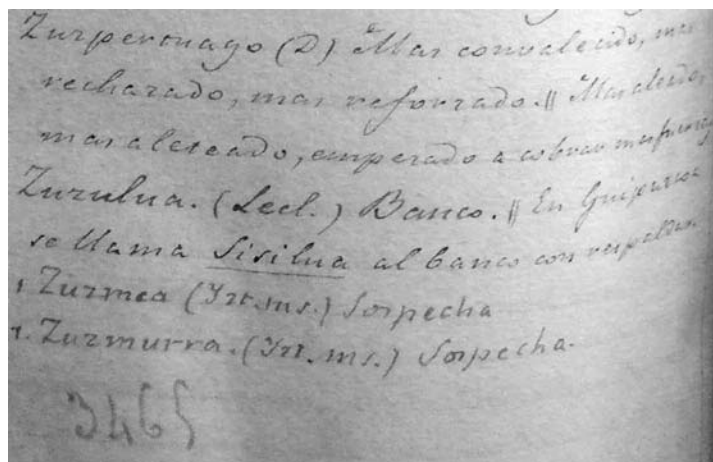 Zurperonago (D) Mas convalecido, mas
rechazado, mas reforzado. || Mas
mas aleteado, emperado a cobrar mas
Zurulua. (Lecl.) Banco. || En Guipuzcoa
se llama Sisilua al banco con respaldar.
1. Zurmea (Yzt. ms.) Sospecha
2. Zurmurra. (Yzt. ms.) Sospecha.
3465